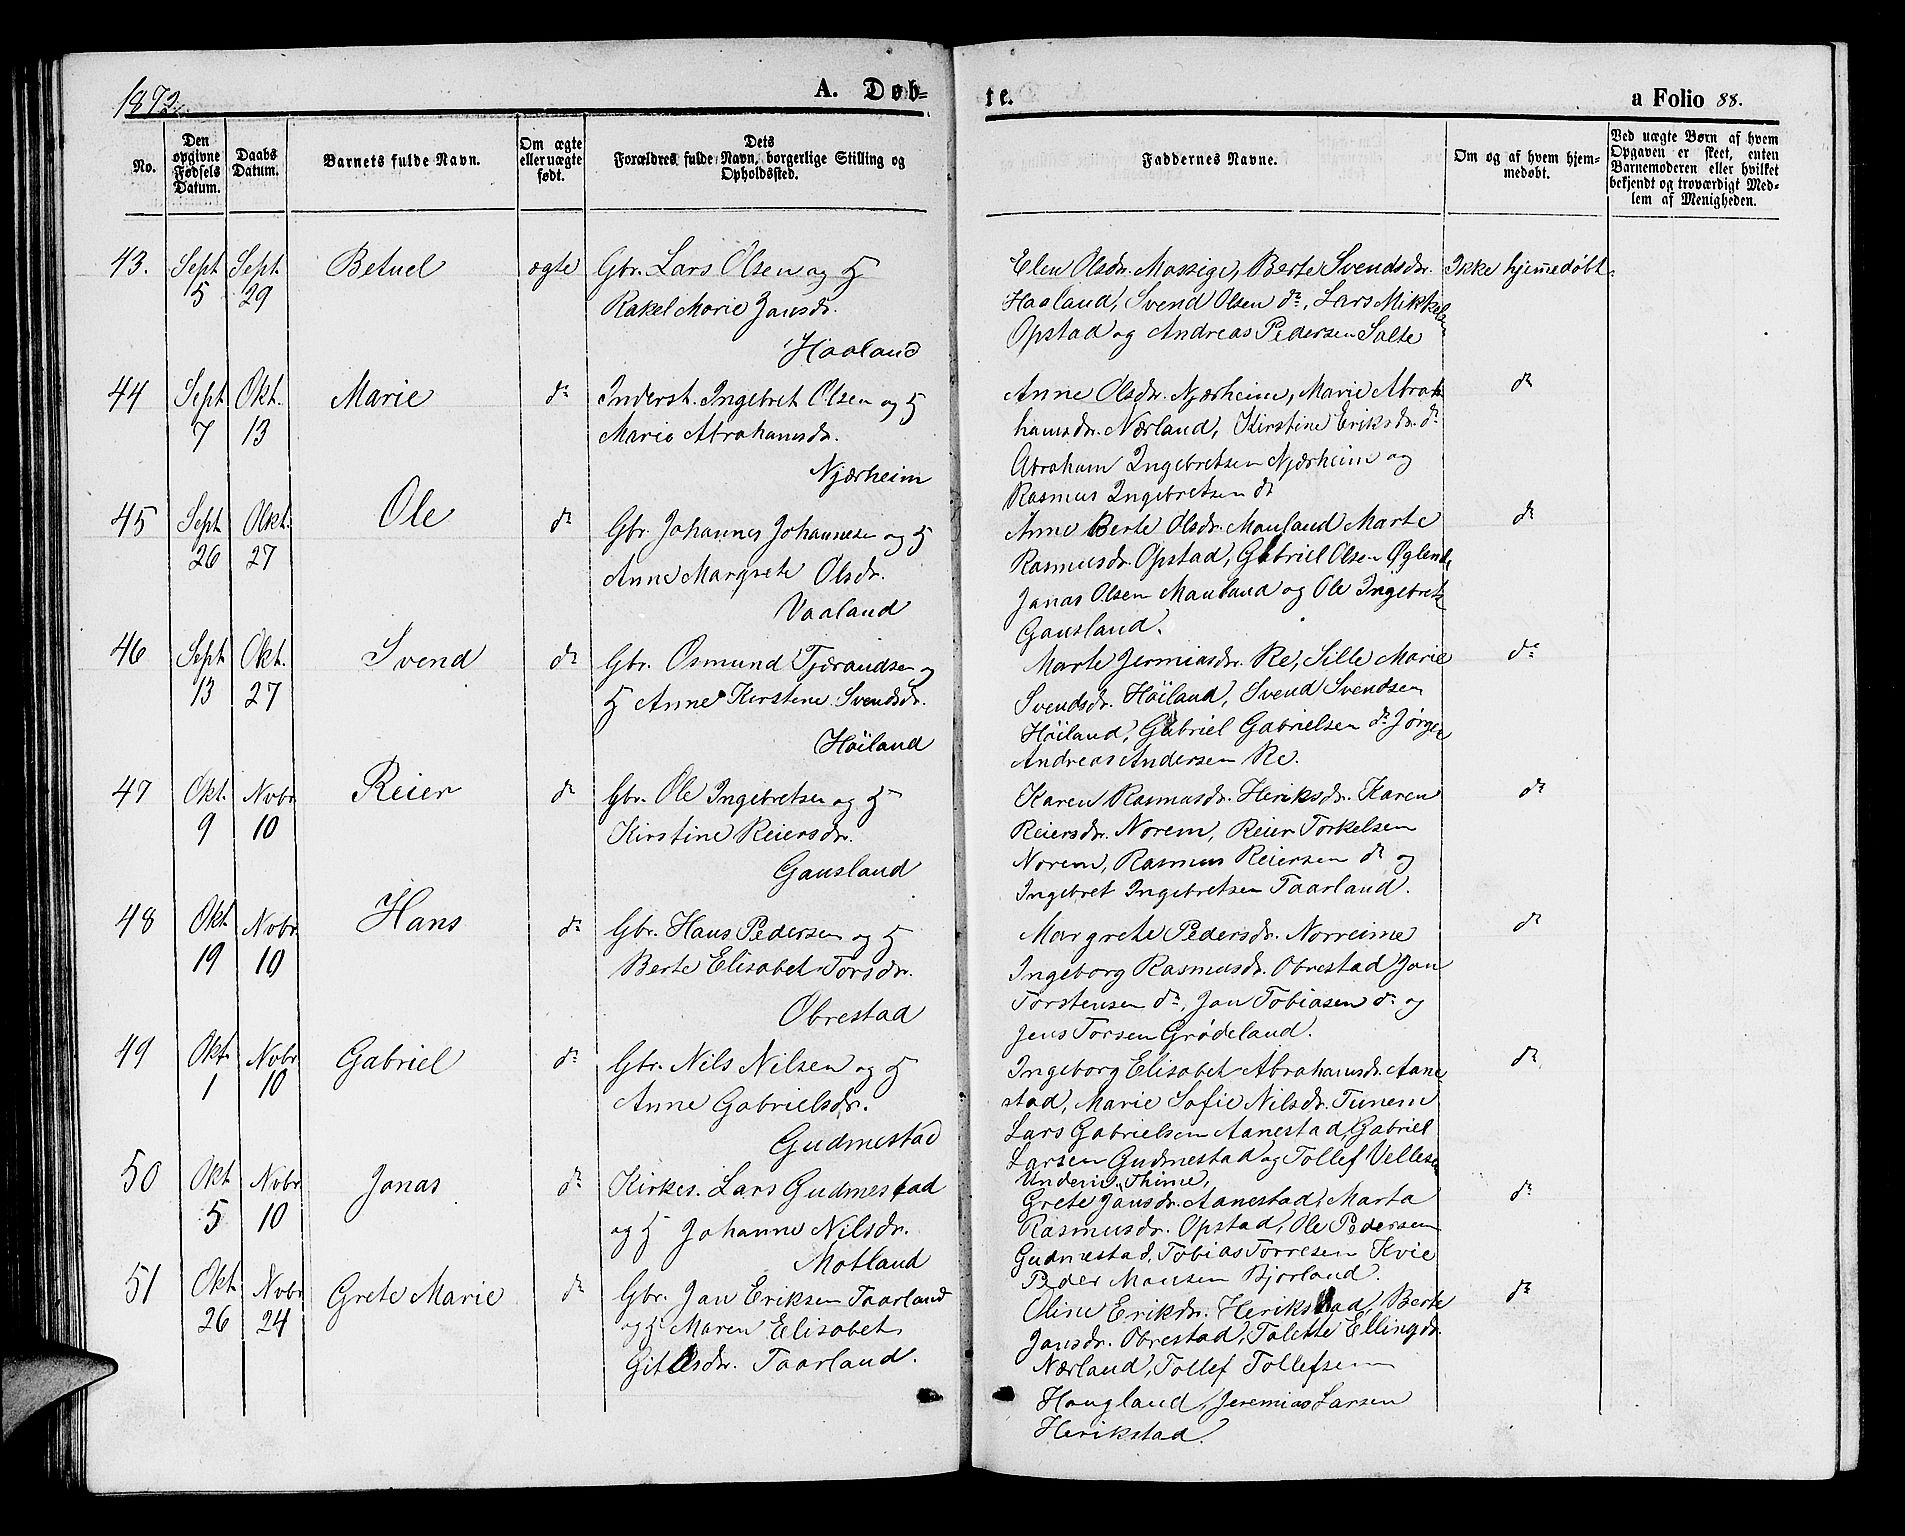 1872.
A. Døb-
te.
a Folio 88.
No.
Den opgivne Fødsels Datum.
Daabs Datum.
Barnets fulde Navn.
Om ægte eller uægte født.
Dets Forældres fulde Navn, borgerlige Stilling og Opholdssted.
Faddernes Navne.
Om og af hvem hjemmedøbt.
Ved uægte Børn af hvem Opgaven er skeet, enten Barnemoderen eller hvilket bekjendt og troværdigt Medlem af Menigheden.
43. Sept 5 Sept. 29 Betuel ægte
Gbr. Lars Olsen og H
Rakel Marie Jansdr.
Haaland
Elen Olsdr. Mossige, Berte Svendsdr.
Haaland, Svend Olsen do, Lars Mikkelsen
Opstad og Andreas Pedersen Salte
Ikke hjemmedøbt.
44 Sept 7 Okt. 13 Marie do
Inderst. Ingebret Olsen og H
Marie Abrahamsdr.
Njærheim
Anne Olsdr. Njærheim, Marie Abra
hamsdr. Nærland, Kirstine Eriksdr. do
Abraham Ingebretsen Njærheim og
Rasmus Ingebretsen do
do
45 Sept 26 Okt. 27 Ole do
Gbr. Johannes Johannesen og H
Anne Margrete Olsdr.
Vaaland
Anne Berte Olsdr. Mauland Marte
Rasmusdr. Opstad, Gabriel Olsen Øglend,
Jonas Olsen Mauland og Ole Ingebretsen
Gausland.
do
46 Sept 13 Okt. 27 Svend do
Gbr. Osmund Tjørandsen og
H Anne Kirstine Svendsdr.
Høiland
Marte Jermiasdr. Re, Sille Marie
Svendsdr. Høiland, Svend Svendsen
Høiland, Gabriel Gabrielsen do Jørgen
Andreas Andersen Re.
do
47 Okt. 9 Novbr 10 Reier do
Gbr. Ole Ingebretsen og H
Kirstine Reiersdr.
Gausland
Karen Rasmusdr. Heriksdr. Karen
Reiersdr. Norem, Reier Torkelsen
Norem, Rasmus Reiersen do og
Ingebret Ingebretsen Taarland.
do
48 Okt 19 Novbr 10 Hans do
Gbr. Hans Pedersen og H
Berte Elisabet Torsdr.
Obrestad
Margrete Pedersdr. Norreime
Ingeborg Rasmusdr. Obrestad Jan
Torstensen do, Jan Tobiasen do og
Jens Torsen Grødeland.
do
49 Okt. 1 Novbr 10 Gabriel do
Gbr. Nils Nilsen og H
Anne Gabrielsdr.
Gudmestad
Ingeborg Elisabet Abrahamsdr. Aane
stad, Marie Sofie Nilsdr. Tunem
Lars Gabrielsen Aanestad, Gabriel
Larsen Gudmestad og Tollef Vellesen
Underis. Thime,
do
50 Okt 5 Novbr 10 Jonas do
Kirkes. Lars Gudmestad
og H Johanne Nilsdr.
Motland
Grete Jansdr. Aanestad, Marta
Rasmusdr. Opstad, Ole Pedersen
Gudmestad, Tobias Torresen Kvie
Peder Monsen Bjorland.
do
51 Okt. 26 Novbr 24 Grete Marie do
Gbr. Jan Eriksen Taarland
og H Maren Elisabet
Gitlesdr. Taarland.
Oline Eriksdr. Herikstad, Berte
Jansdr. Obrestad, Talette Ellingsdr.
Nærland, Tollef Tollefsen
Haugland, Jeremias Larsen
Herikstad.
do